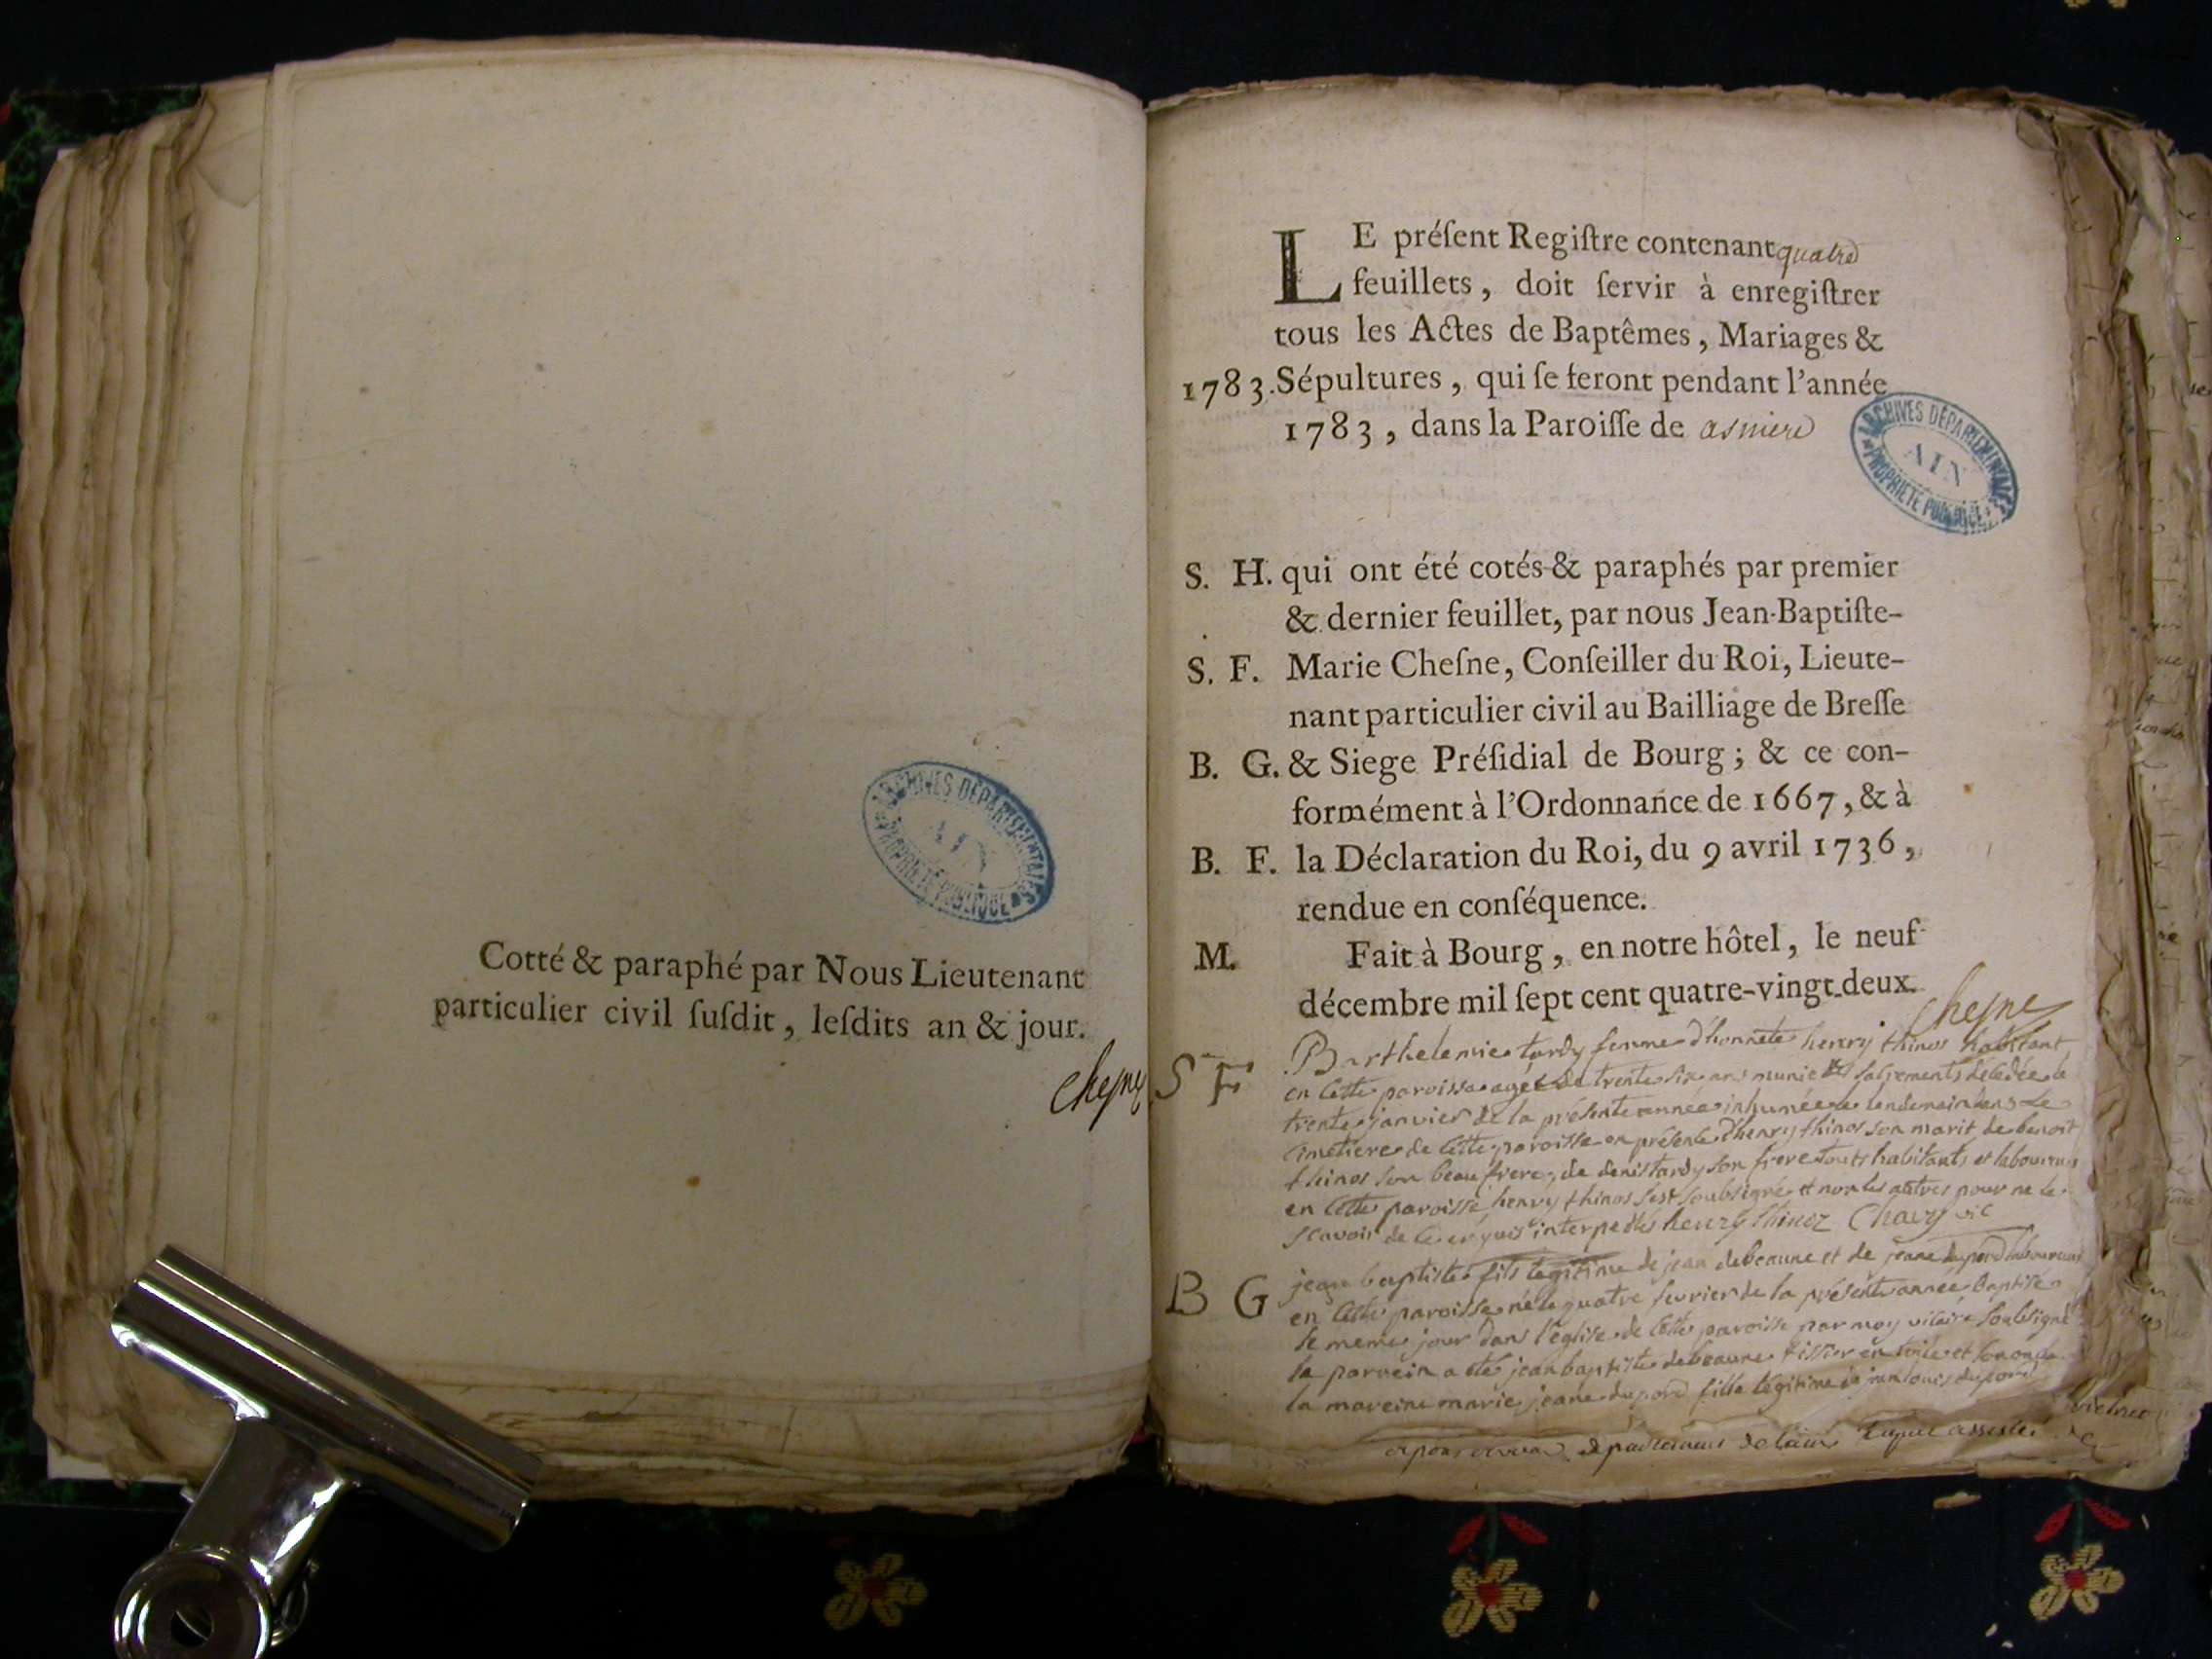 Cotté & paraphé par Nous Lieutenant
particulier civil ſuſdit, leſdits an & jour.
Cheſne
ARCHIVES DÉPARTEMENTALES
AIN
PROPRIÉTÉ PUBLIQUE
LE préſent Regiſtre contenant quatre
feuillets, doit ſervir à enregiſtrer
tous les Actes de Baptêmes, Mariages &
1783. Sépultures, qui ſe feront pendant l'année
1783, dans la Paroiſſe de asniere
ARCHIVES DÉPARTEMENTALES
AIN
PROPRIÉTÉ PUBLIQUE
S. H. qui ont été cotés & paraphés par premier
& dernier feuillet, par nous Jean-Baptiſte-
S. F. Marie Cheſne, Conſeiller du Roi, Lieute-
nant particulier civil au Bailliage de Breſſe
B. G. & Siege Préſidial de Bourg; & ce con-
formément à l'Ordonnance de 1667, & à
B. F. la Déclaration du Roi, du 9 avril 1736,
rendue en conſéquence.
M. Fait à Bourg, en notre hôtel, le neuf
décembre mil ſept cent quatre-vingt-deux.
Cheſne
S F Barthelemie tardy femme d'honnete henry thinos habitant
en cette paroisse agée de trente six ans munie des sacrements décédée le
trente janvier de la présente année inhumée le lendemain dans le
cimetiere de cette paroisse en présence d'henry thinos son marit de benoit
thinos son beau frere, de denis tardy son frere touts habitants et laboureurs
en cette paroisse henry thinos s'est soubsigné et non les autres pour ne le
scavoir de ce enquis interpellés henry thinoz Chavy vic
B G jean baptiste fils legitime de jean debeaune et de jeane dupond laboureurs
en cette paroisse né le quatre fevrier de la présente année baptisé
le meme jour dans l'église de cette paroisse par moy vicaire soubsigné
le parrein a été jean baptiste debeaune tissier en toile et son oncle
la mareine marie jeane dupond fille legitime de jean louis dupond